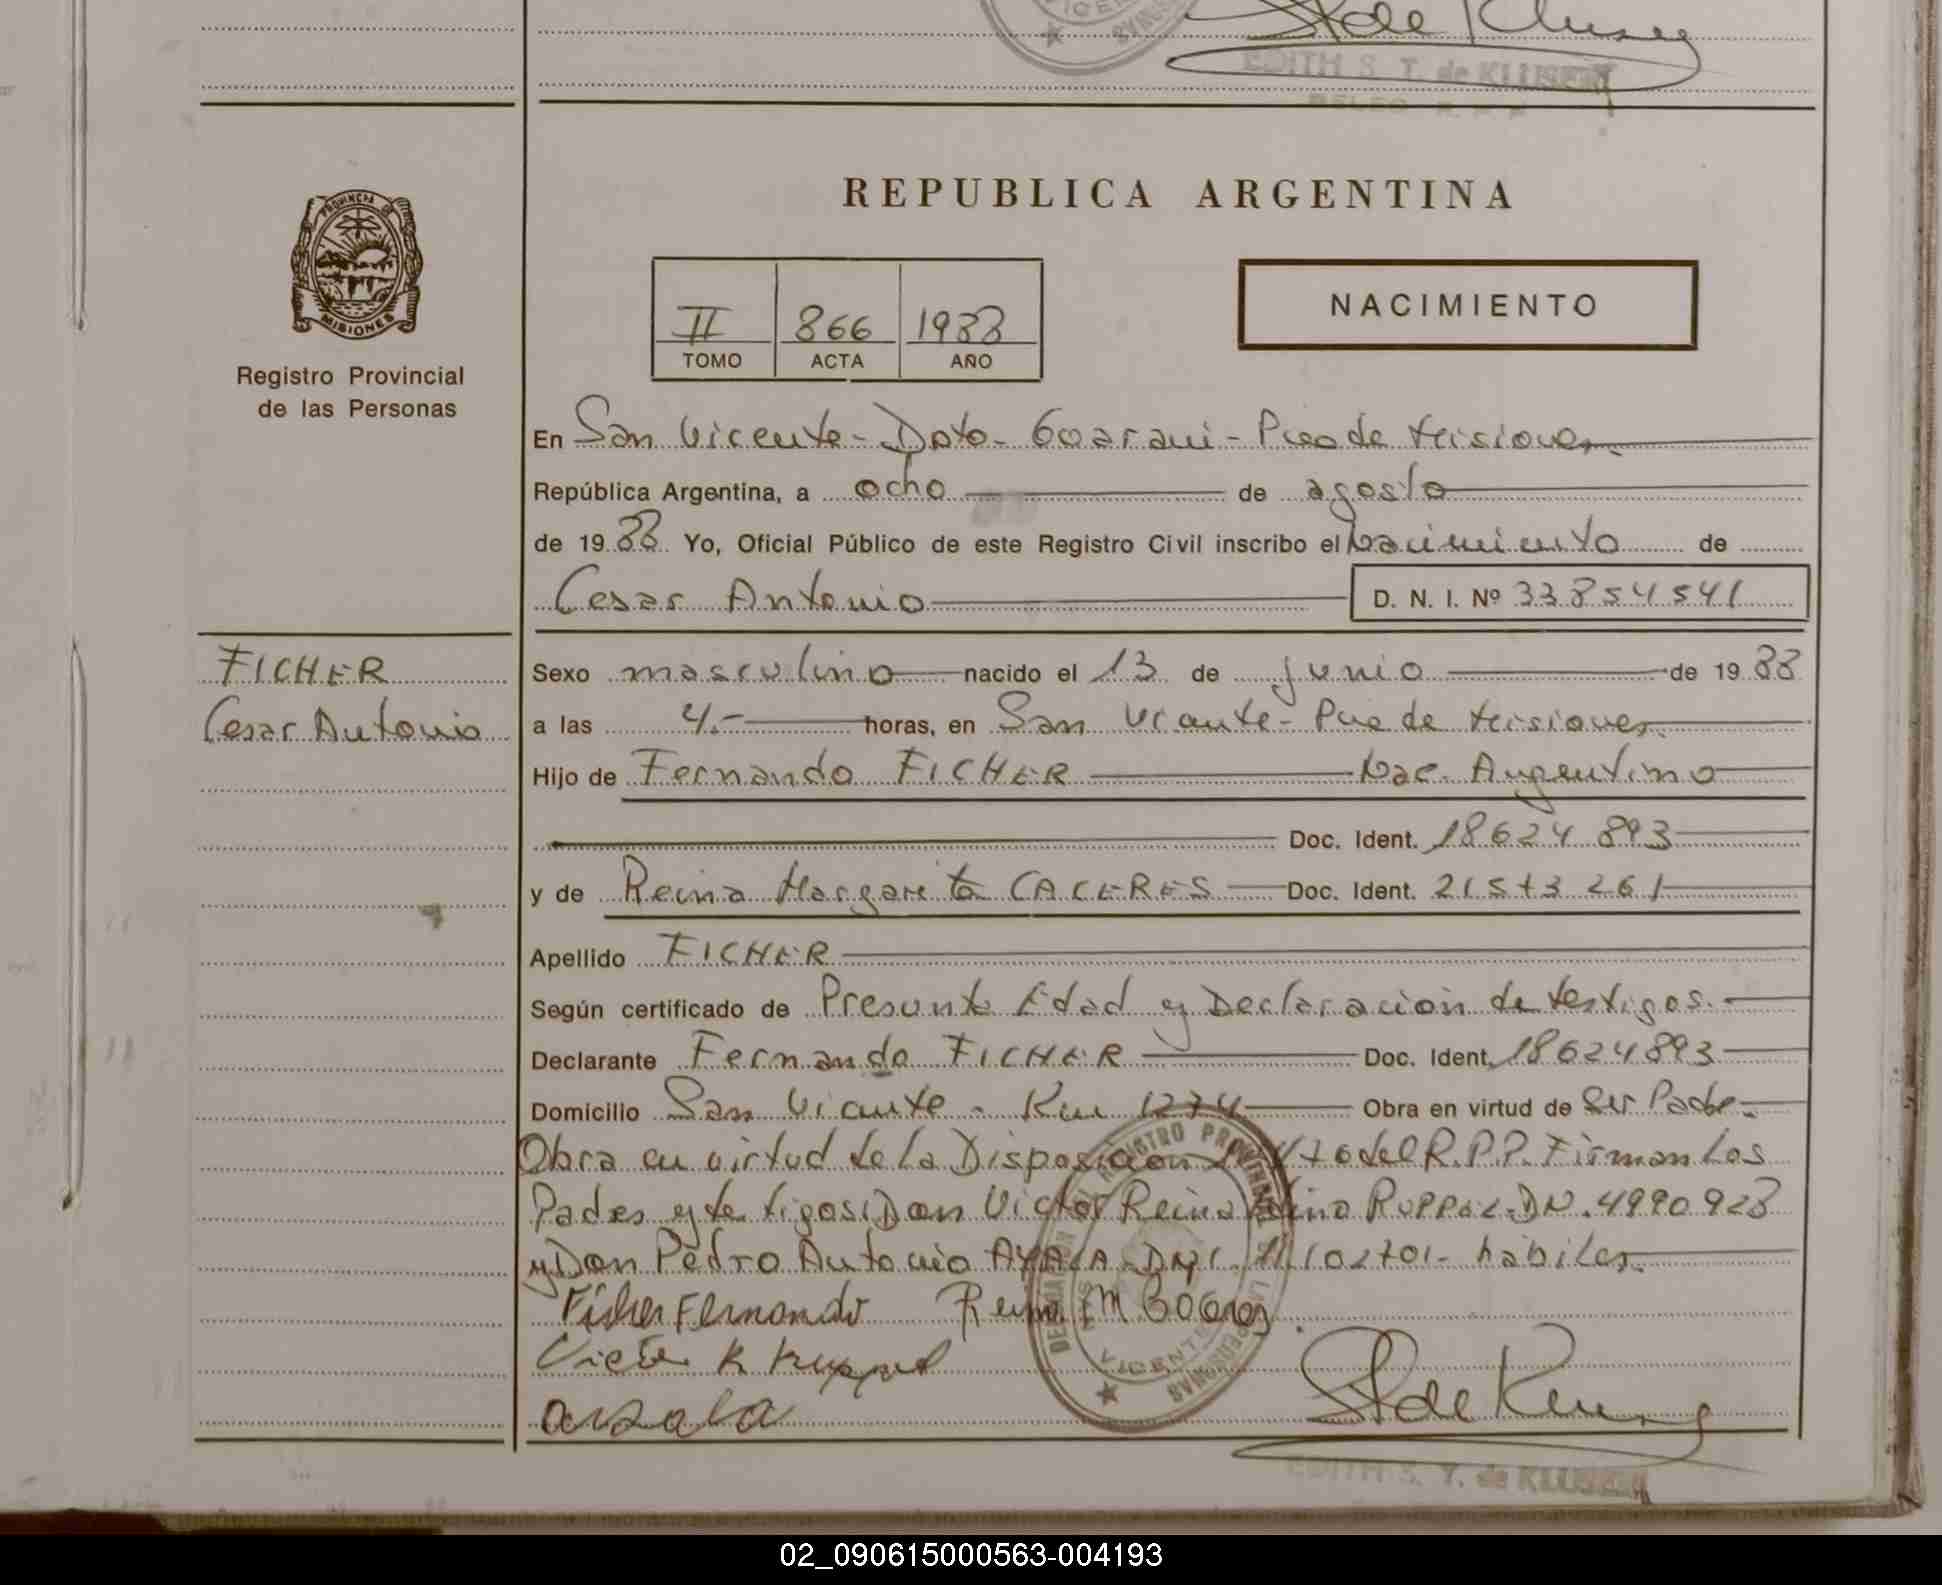 EDITH S. T. de KLUSENER
REPUBLICA ARGENTINA
PROVINCIA DE
MISIONES
Registro Provincial
de las Personas
II 866 1988
TOMO ACTA AÑO
NACIMIENTO
En San Vicente - Dpto - Guarani - Pcia de Misiones
República Argentina, a ocho de agosto
de 1988 Yo, Oficial Público de este Registro Civil inscribo el Nacimiento de
Cesar Antonio D. N. I. Nº 33854541
FICHER
Cesar Antonio
Sexo masculino nacido el 13 de junio de 1988
a las 4.- horas, en San Vicente - Pcia de Misiones
Hijo de Fernando FICHER Nac. Argentino
Doc. Ident. 18624893
y de Reina Margarita CACERES Doc. Ident. 21573261
Apellido FICHER
Según certificado de Presunta Edad y Declaracion de testigos.
Declarante Fernando FICHER Doc. Ident. 18624893
Domicilio San Vicente - Km 1274 Obra en virtud de ser Padre.
Obra en virtud de la Disposicion del R.P.P. Firman los
Padres y testigos Don Victor Reina RUPPEL DN. 4990928
y Don Pedro Antonio AYALA DNI. 11102701 - habiles.
Fisher Fernando Reina M
ayala
EDITH S. T. de KLUSENER
02_090615000563-004193